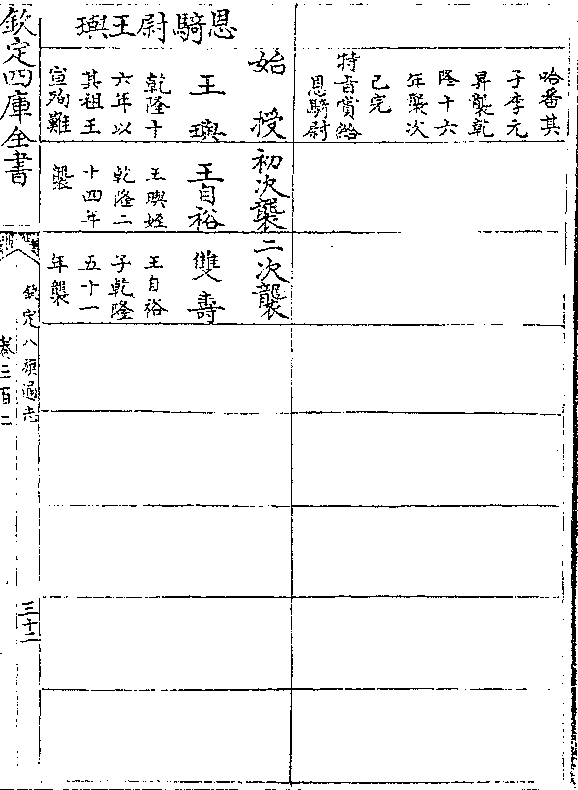 哈番其
子李元
昇襲乾
隆十六
年襲次
已完
特旨賞給
恩騎尉
恩騎尉王璵
始授
王璵
乾隆十
六年以
其祖王
宣殉難
初次襲
王自裕
王璵姪
乾隆二
十四年
襲
二次襲
雙壽
王自裕
子乾隆
五十一
年襲
欽定四庫全書
欽定八旗通志
卷三百二
三十二